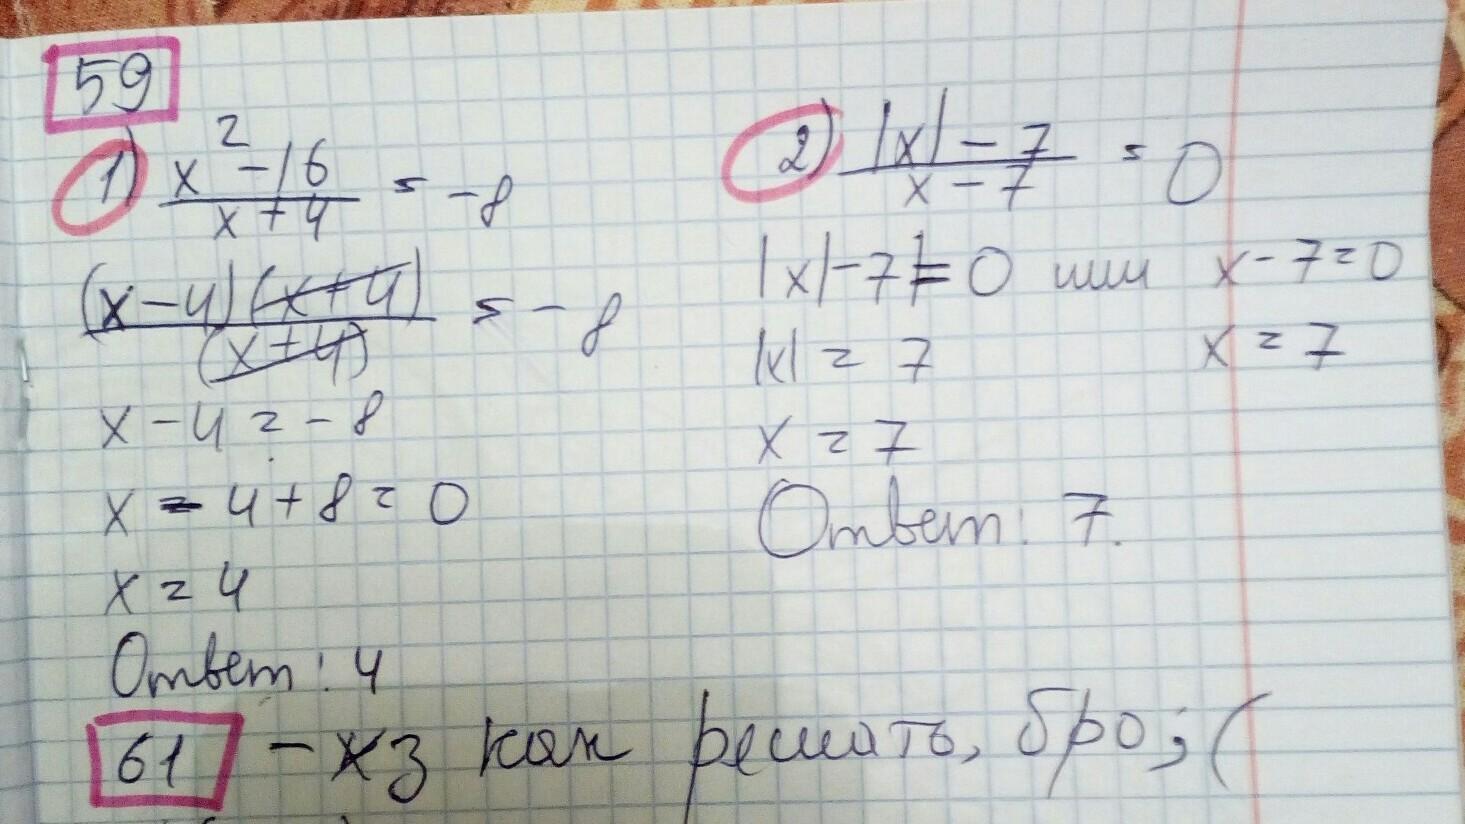 59
1) x² - 16 / x + 4 = -8
(x - 4)(x + 4) / (x + 4) = -8
x - 4 = -8
x - 4 + 8 = 0
x = 4
Ответ: 4
2) |x| - 7 / x - 7 = 0
|x| - 7 = 0 или x - 7 = 0
|x| = 7 x = 7
x = 7
Ответ: 7.
61 - хз как решать, бро ;(